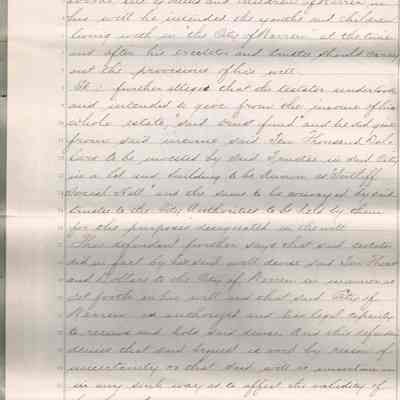 his will he intended the youths and children
living with in "the City of Warren" at the time
and after his executor and trustee should carry
out the provisions of his will.
It further alleges that the testator understood
and intended to give from the income of his
whole estate, "said trust fund" and he did give
from said income said Ten Thousand Dol-
lars to be invested by said Trustee in said City
in a lot and building to be known as
Social Hall" and the same to be conveyed by said
trustee to the City Authorities to be held by them
for the purposes designated in the will
This defendant further says that said testator
did in fact by his said will devise said Ten Thous
and Dollars to the City of Warren in manner as
set forth in his will and that said City of
Warren is authorized and has legal capacity
to receive and hold said devise And this defendant
denies that said bequest is void by reason of
uncertainty or that said will is uncertain
in any such way as to affect the validity of